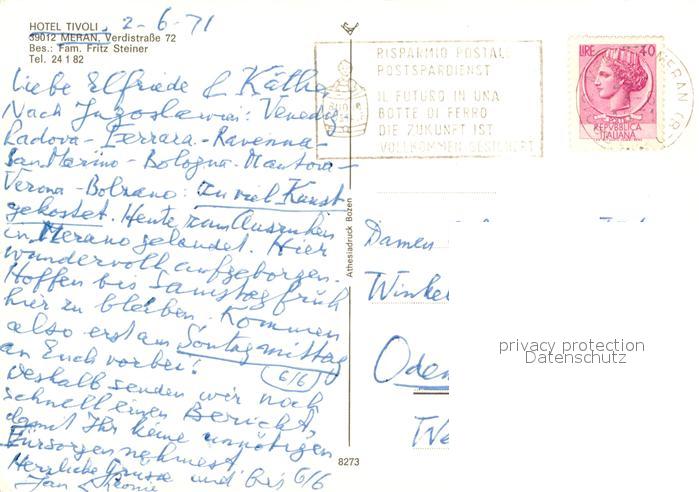 HOTEL TIVOLI 2-6-71
39012 MERAN, Verdistraße 72
Bes.: Fam. Fritz Steiner
Tel. 24 1 82
Liebe Elfriede & Käthe
Nach Jugoslawien: Venedig
Padova - Ferrara - Ravenna -
San Marino - Bologna - Mantova -
Verona - Bolzano: zu viel Kunst
gekostet. Heute zum Ausruhen
in Merano gelandet. Hier
wundervoll aufgehoben.
Hoffen bis Samstag früh
hier zu bleiben. Kommen
also erst am Sontagmittag
an Euch vorbei! 6/6
Deshalb senden wir noch
schnell einen Bericht,
damit Ihr keine unnötigen
Fürsorgen nehmest
Herzliche Grüsse und bis 6/6
Athesiadruck Bozen
8273
RISPARMIO POSTALE
POSTSPARDIENST
IL FUTURO IN UNA
BOTTE DI FERRO
DIE ZUKUNFT IST
VOLLKOMMEN GESICHERT
LIRE 40
REPVBBLICA
ITALIANA
MERAN
Damen
Winkel
Oden
We
privacy protection
Datenschutz